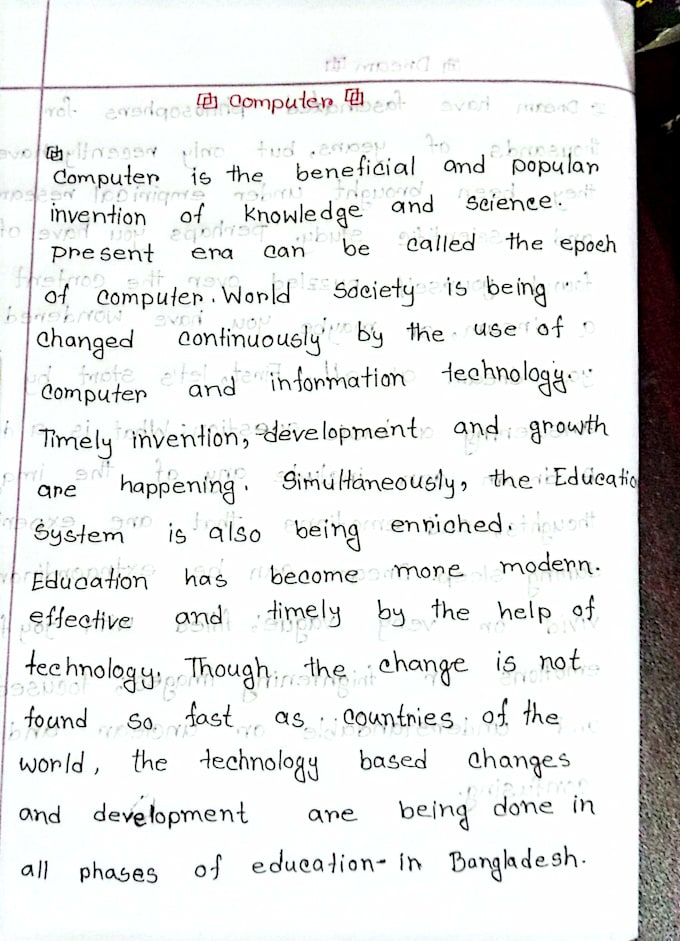 Computer
Computer is the beneficial and popular
invention of knowledge and science.
present era can be called the epoch
of computer. World Society is being
changed continuously by the use of
computer and information technology.
Timely invention, development and growth
are happening. Simultaneously, the Educatio
System is also being enriched.
Education has become more modern.
effective and timely by the help of
technology. Though the change is not
found so fast as countries of the
world, the technology based changes
and development are being done in
all phases of education- in Bangladesh.